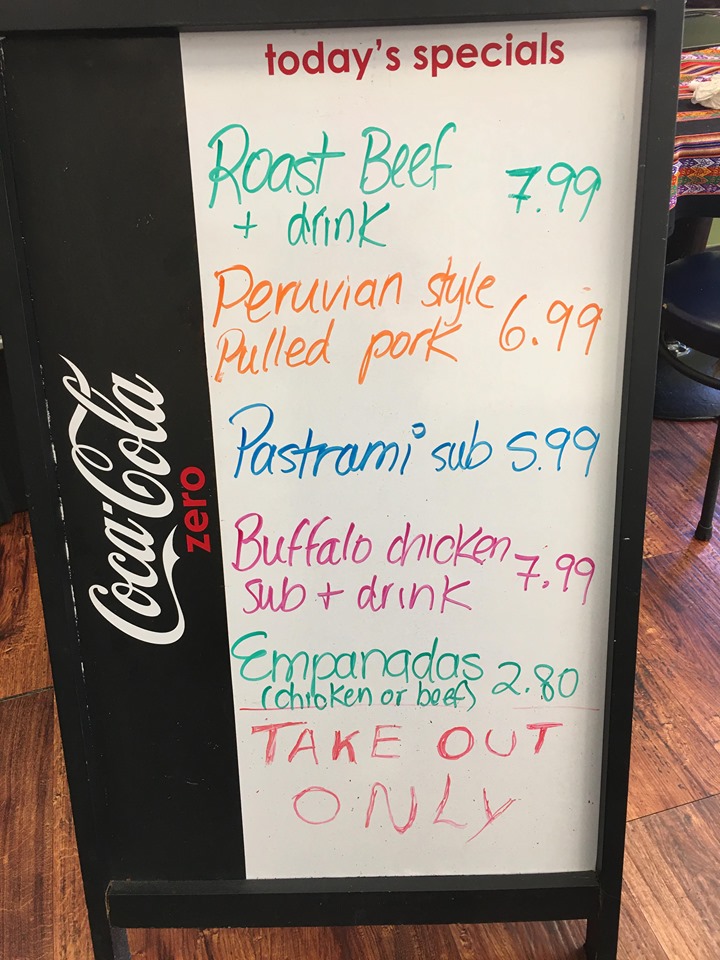 today's specials
Roast Beef 7.99
+ drink
Peruvian style
Pulled pork 6.99
Pastrami sub 5.99
Buffalo chicken
sub + drink 7.99
Empanadas 2.80
(chicken or beef)
TAKE OUT
ONLY
Coca-Cola
zero